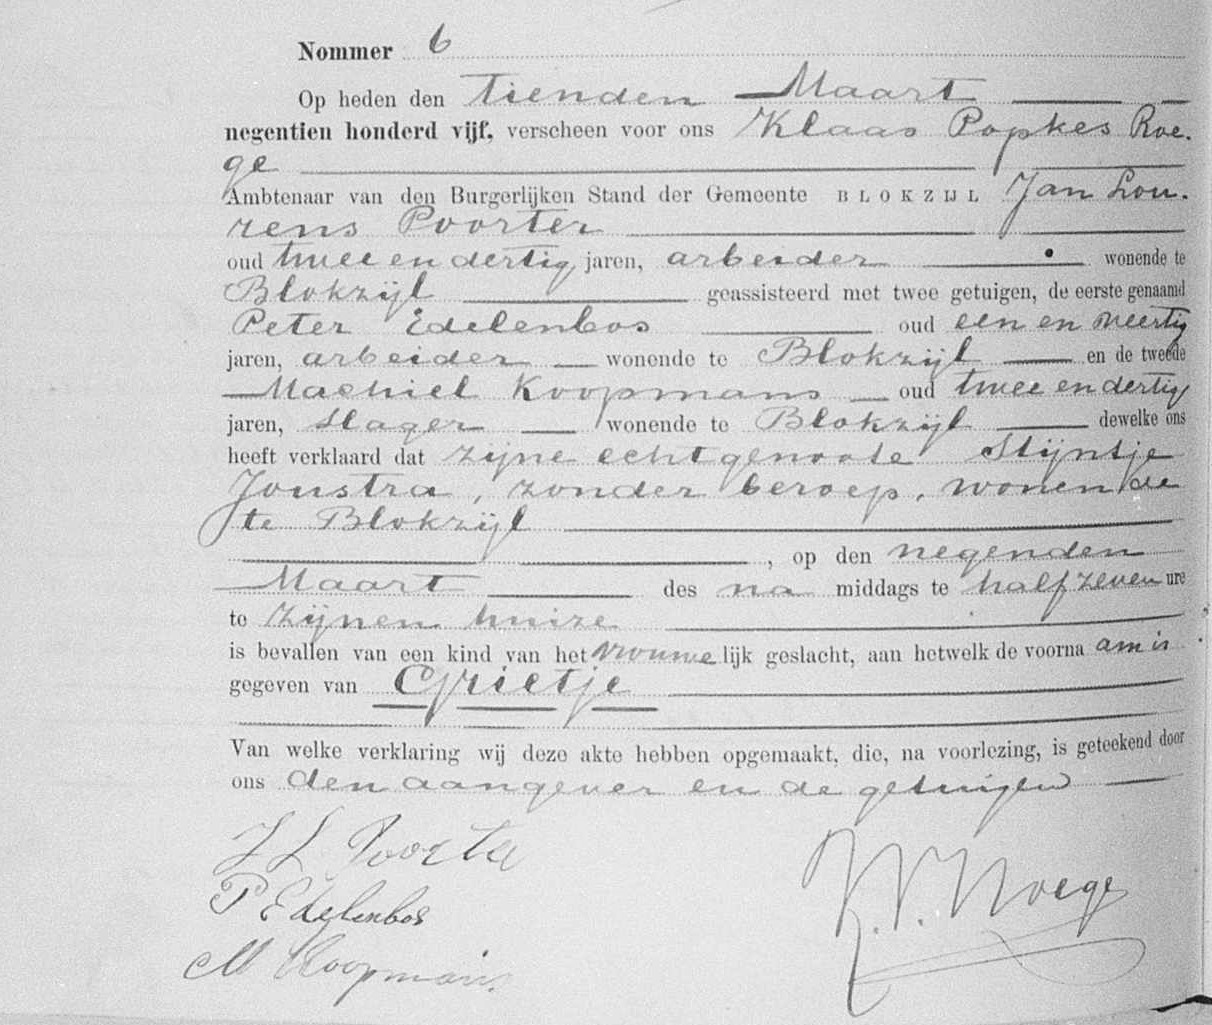 Nommer 6
Op heden den Tienden Maart
negentien honderd vijf, verscheen voor ons Klaas Popkes Roe-
ge
Ambtenaar van den Burgerlijken Stand der Gemeente BLOKZIJL Jan Lou-
rens Poorter
oud twee en dertig jaren, arbeider wonende te
Blokzijl geassisteerd met twee getuigen, de eerste genaamd
Peter Edelenbos oud een en veertig
jaren, arbeider wonende te Blokzijl en de tweede
Machiel Koopmans oud twee en dertig
jaren, slager wonende te Blokzijl dewelke ons
heeft verklaard dat zijne echtgenoote Stijntje
Joustra, zonder beroep, wonende
te Blokzijl
, op den negenden
Maart des na middags te half zeven ure
te zijnen huize
is bevallen van een kind van het vrouwelijk geslacht, aan hetwelk de voorna am is
gegeven van Grietje
Van welke verklaring wij deze akte hebben opgemaakt, die, na voorlezing, is geteekend door
ons den aangever en de getuigen
J L Poorter
P Edelenbos
M Koopmans
K. P. Roege